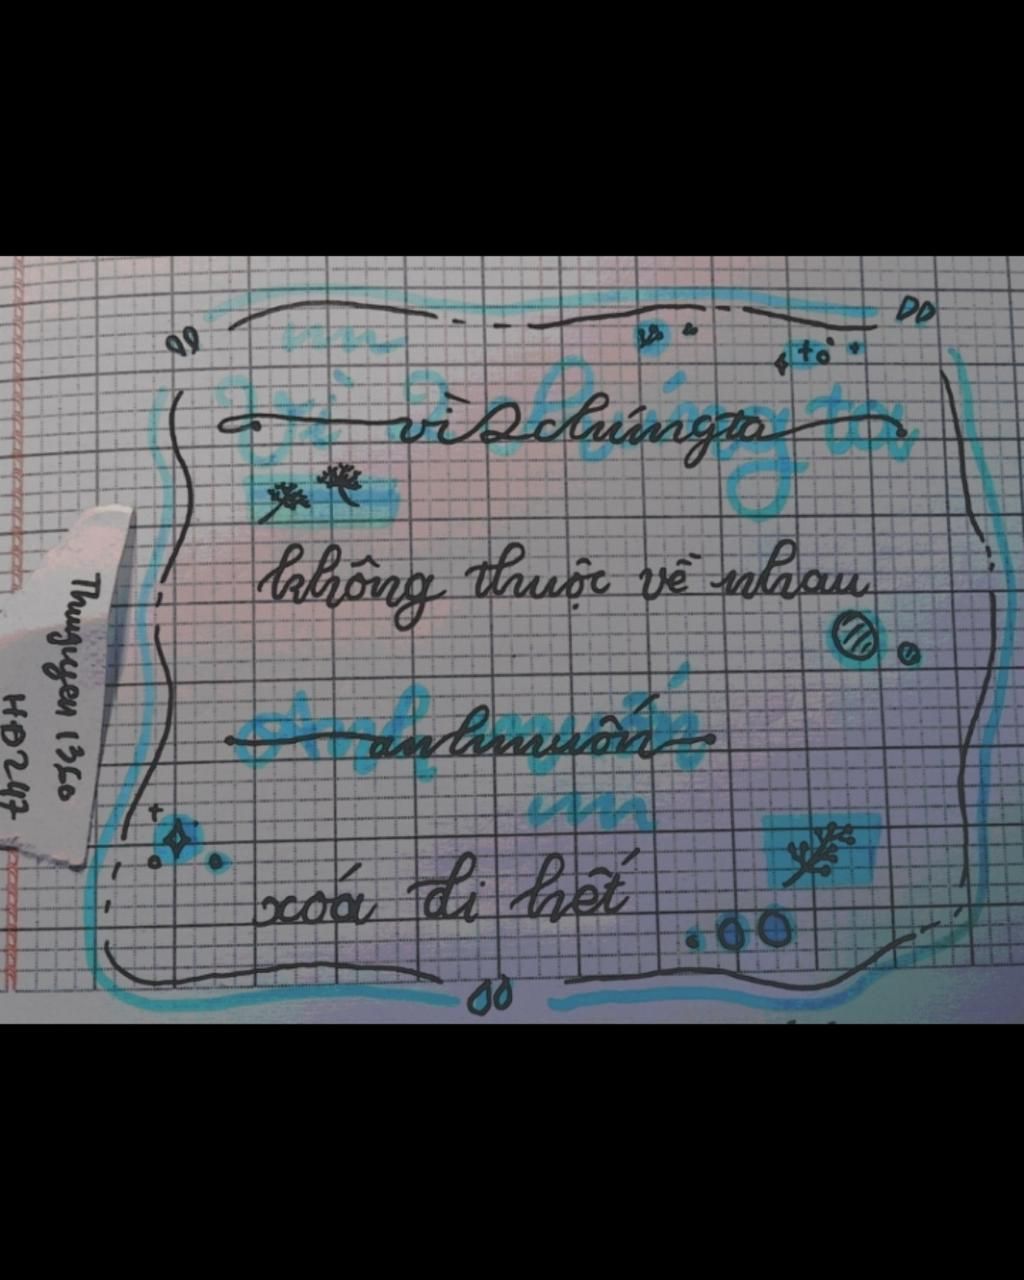 vì 2 chúng ta
không thuộc về nhau
anh muốn
xoá đi hết
Thunguyen 1360
HĐ247